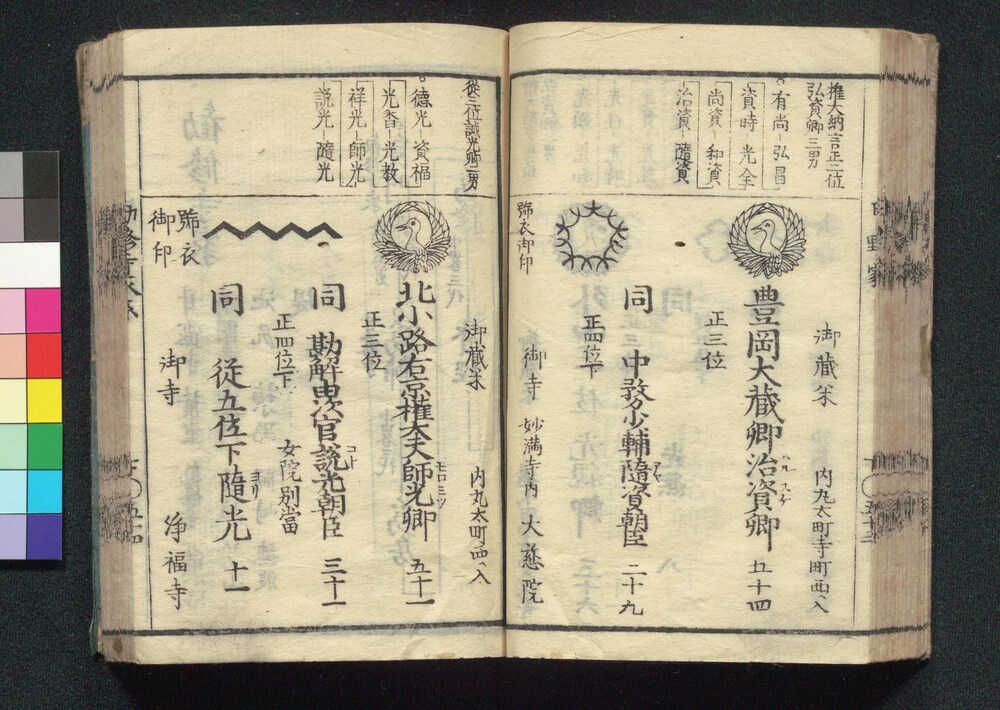 権大納言正二位
弘資卿三男
有尚-弘昌
資時-光全
尚資-和資
治資-随資
御蔵米
内丸太町寺町西ヘ入
豊岡大蔵卿治資卿 五十四
ハルスケ
正三位
同 中務少輔随資朝臣 二十九
正四位下
御寺 妙満寺内 大慈院
号衣御印
従三位誠光卿二男
徳光-資福
光香-光教
祥光-師光
説光-随光
御蔵米
内丸太町西ヘ入
北小路右京権大夫師光卿 五十一
モロミツ
正三位
同 勘解由次官説光朝臣 三十一
コト
正四位下
女院別当
同 従五位下随光 十一
ヨリ
号衣
御印
御寺
浄福寺